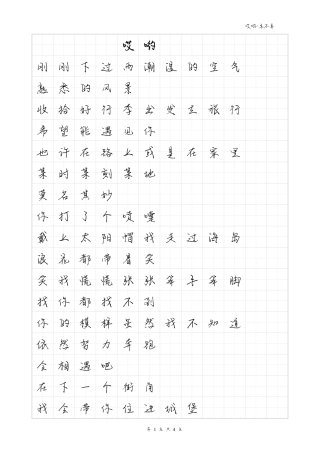 哎哟
刚刚下过雨潮湿的空气
熟悉的风景
收拾好行李出发去旅行
希望能遇见你
也许在路上或是在家里
某时某刻某地
莫名其妙
你打了个喷嚏
戴上太阳帽我天过海岛
浪花都带着笑
笑我慌慌张张笨手笨脚
找你都找不到
你的模样虽然我不知道
依然努力奔跑
会相遇吧
在下一个街角
我会带你住进城堡
第 1 页 共 4 页